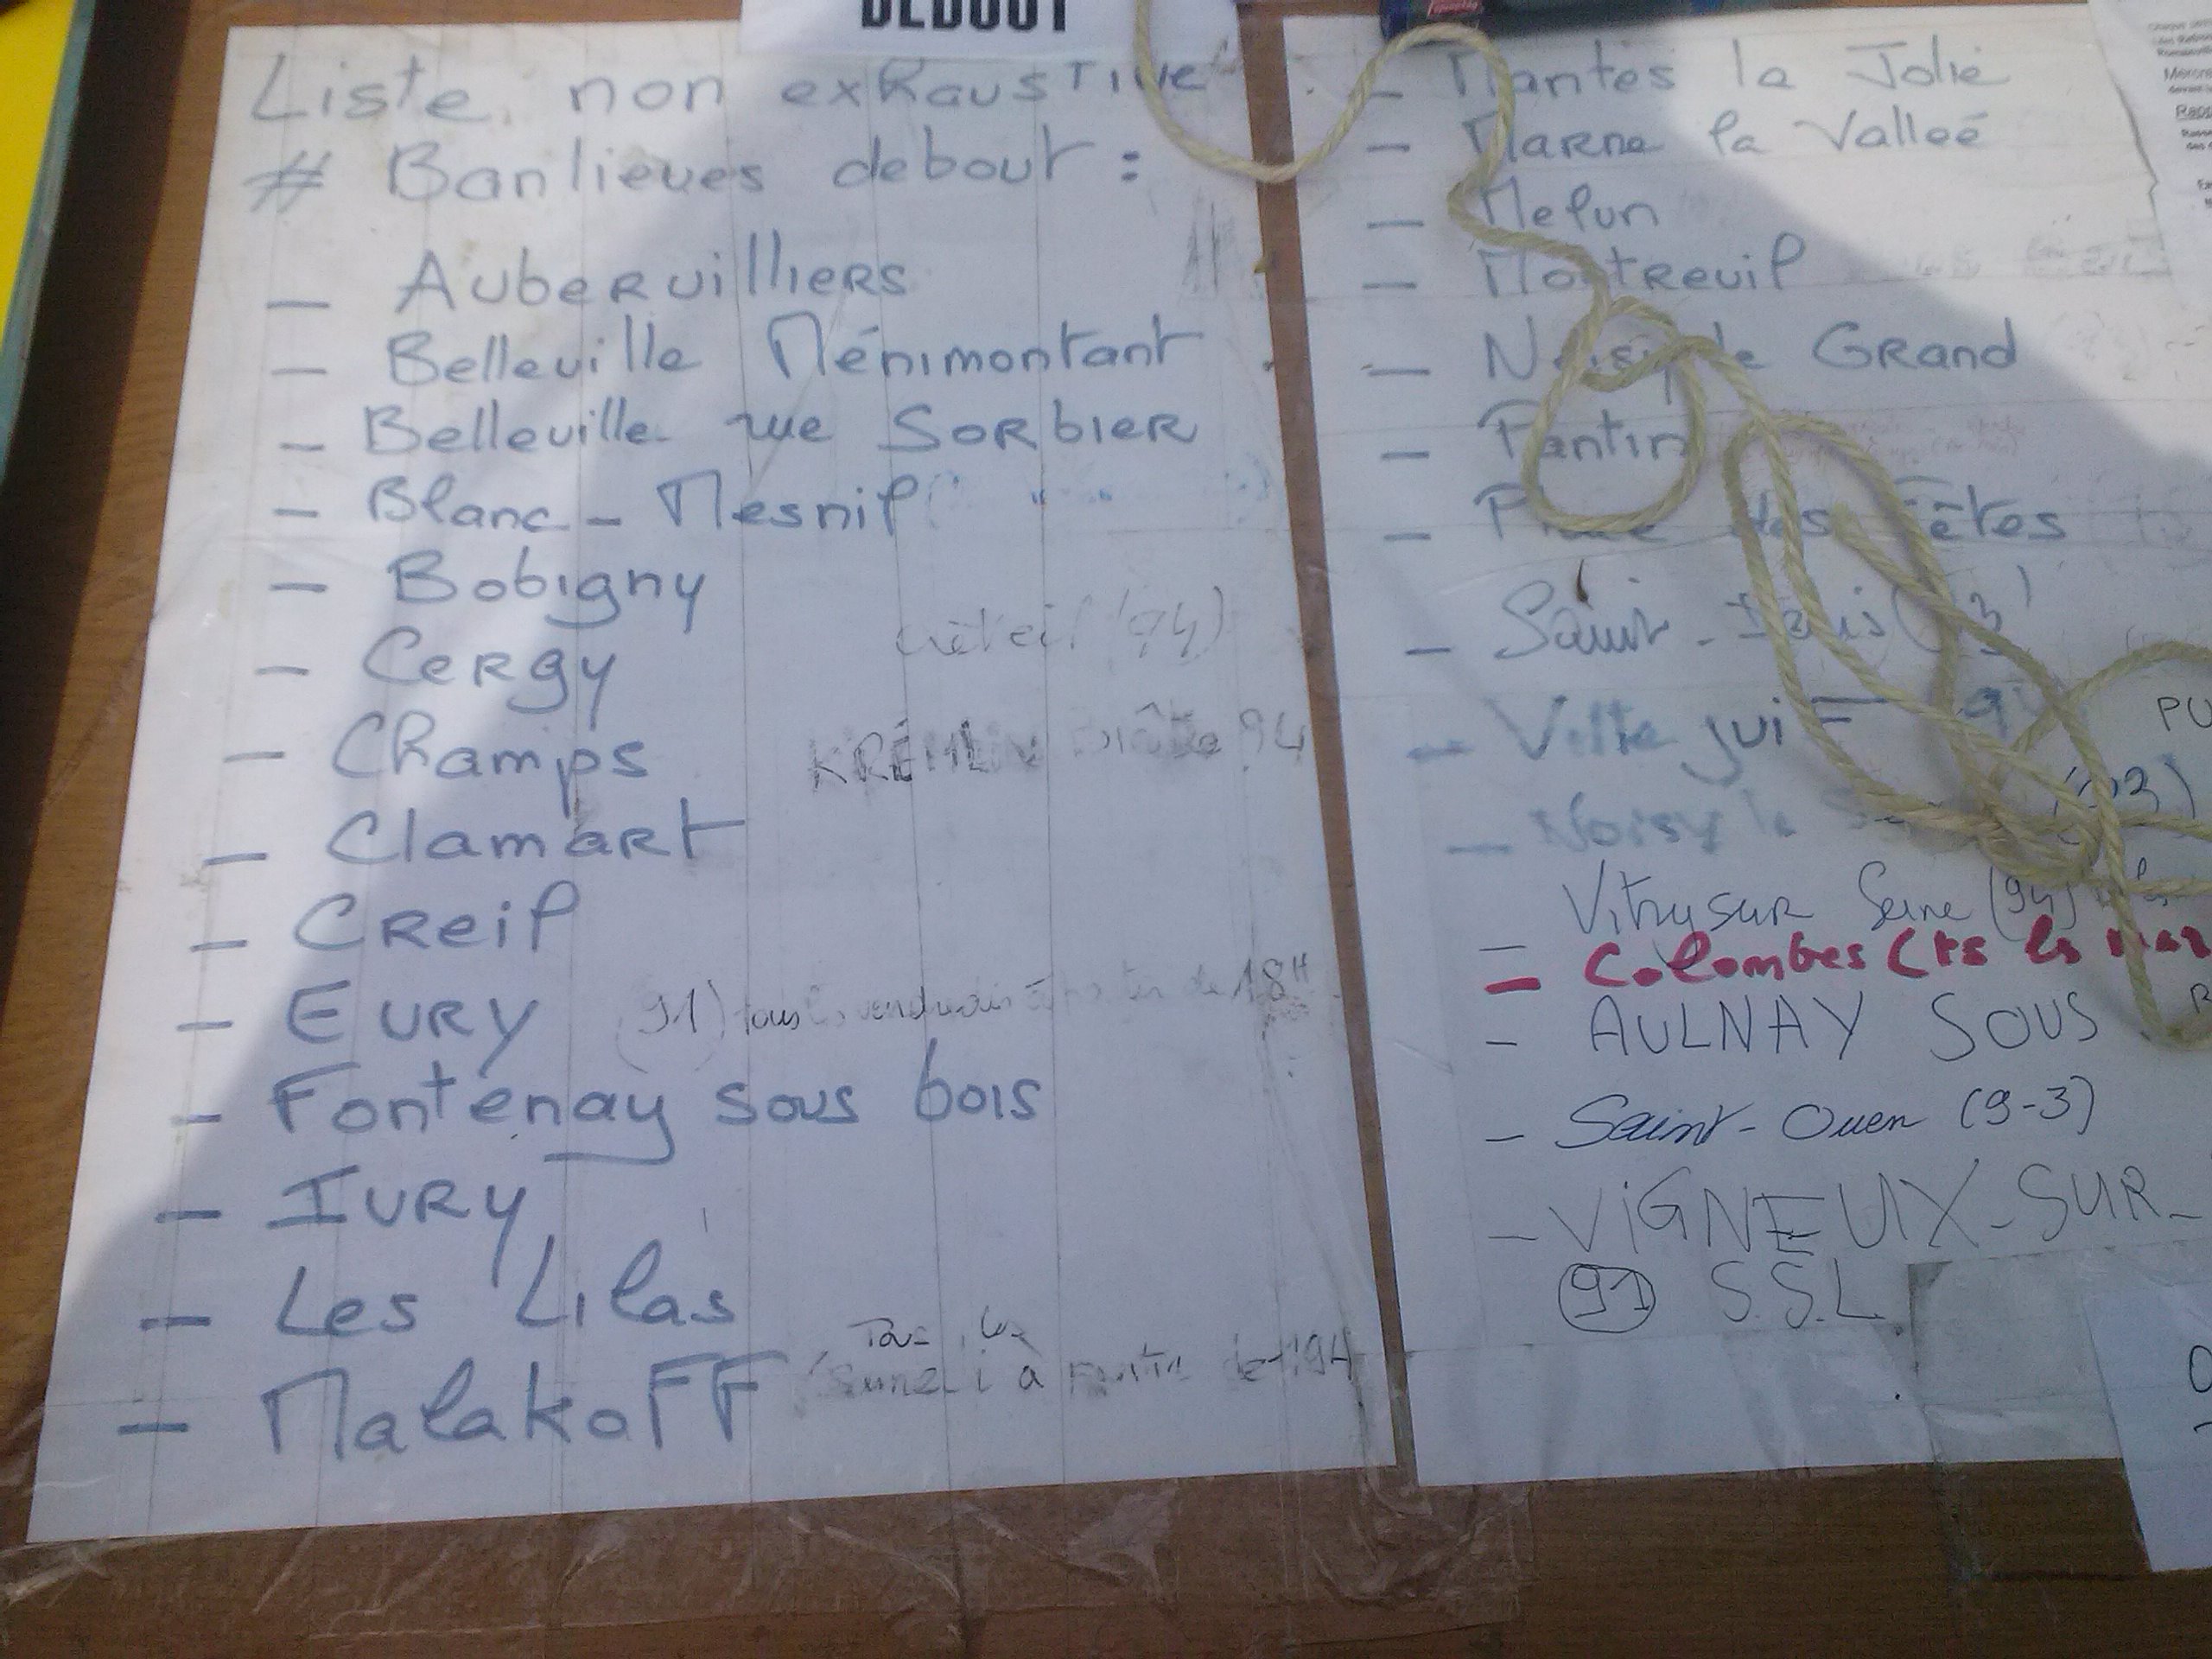 DEBOUT
Liste non exhaustive
# Banlieues debout :
— Aubervilliers
— Belleville Ménimontant
— Belleville rue Sorbier
— Blanc-Mesnil
— Bobigny
Créteil (94)
— Cergy
— Champs
KRÉMLIN 94
— Clamart
— Creil
— Evry (91) tous les vendredis à partir de 18H
— Fontenay sous bois
— Ivry
— Les Lilas
— Malakoff
à partir de
— Mantes la Jolie
— Marne la Valleé
— Melun
— Montreuil
— Noisy le Grand
— Pantin
— Place des Fêtes
— Saint-Denis
— Villejuif
PU
— Noisy le (93)
— Vitry sur Seine (94)
— Colombes (ts les mar
— AULNAY SOUS
— Saint-Ouen (9-3)
— VIGNEUX-SUR-
91 S.S.L